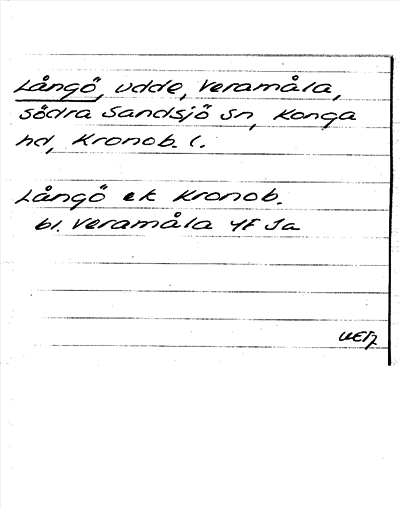 Långö, udde, Veramåla,
Södra Sandsjö sn, Konga
hd, Kronob. l.
Långö ek Kronob.
bl. Veramåla 4f Ja